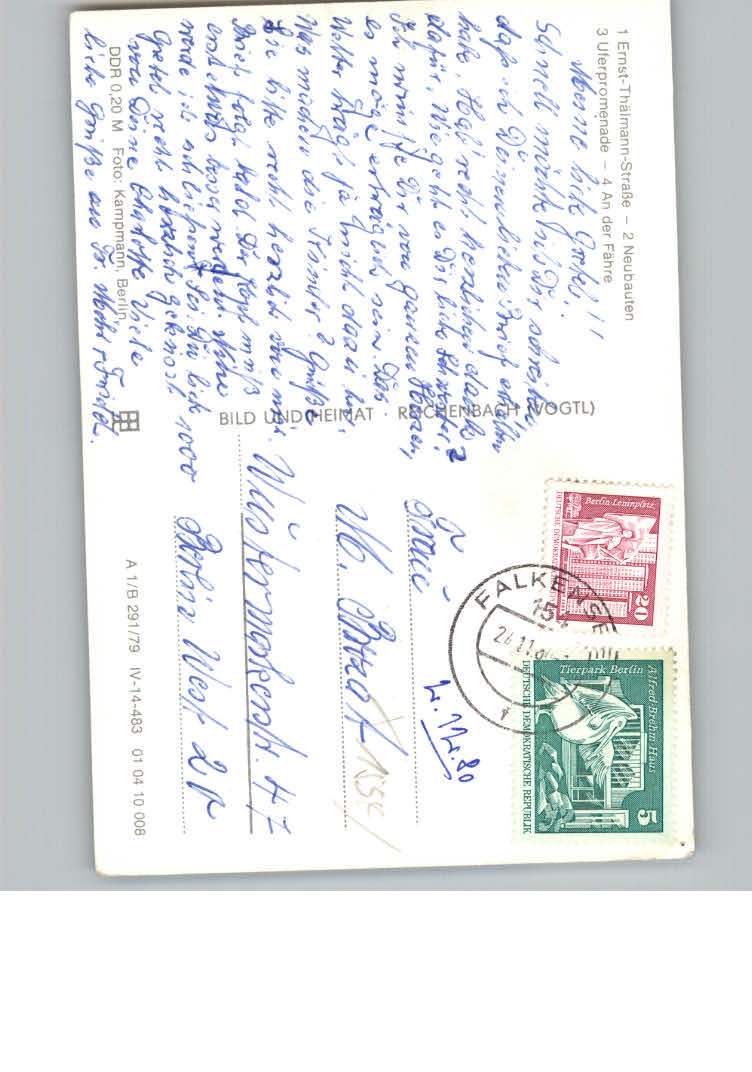 1 Ernst-Thälmann-Straße – 2 Neubauten
3 Uferpromenade – 4 An der Fähre
Meine liebe Gretel!!
Schnell möchte ich Dir schreiben,
daß ich Deinen lieben Brief erhalten
habe. Hab' recht herzlichen Dank
dafür. Wie geht es Dir liebe Schwester?
Ich wünsche Dir von ganzen Herzen,
es möge erträglich sein. Das
Wetter trägt ja nicht dazu bei.
Was machen die Kinder? Grüße
Sie bitte recht herzlich von mir.
Brief folgt bald. Der Kopf muß
erst etwas besser werden. Nun
werde ich schließen. Sei Du liebe
Gretel recht herzlich geküßt
von Deine Charlotte Viele
liebe Grüße an Fr. u. Fritzel.
1000
DDR 0,20 M Foto: Kampmann, Berlin
BILD UND HEIMAT · REICHENBACH (VOGTL)
A 1/B 291/79 IV-14-483 01 04 10 008
Berlin-Leninplatz
DEUTSCHE DEMOKRATISCHE
20
FALKENSEE
154
Tierpark Berlin
Alfred-Brehm-Haus
DEUTSCHE DEMOKRATISCHE REPUBLIK
5
Frau
M.
Berlin West 21
47